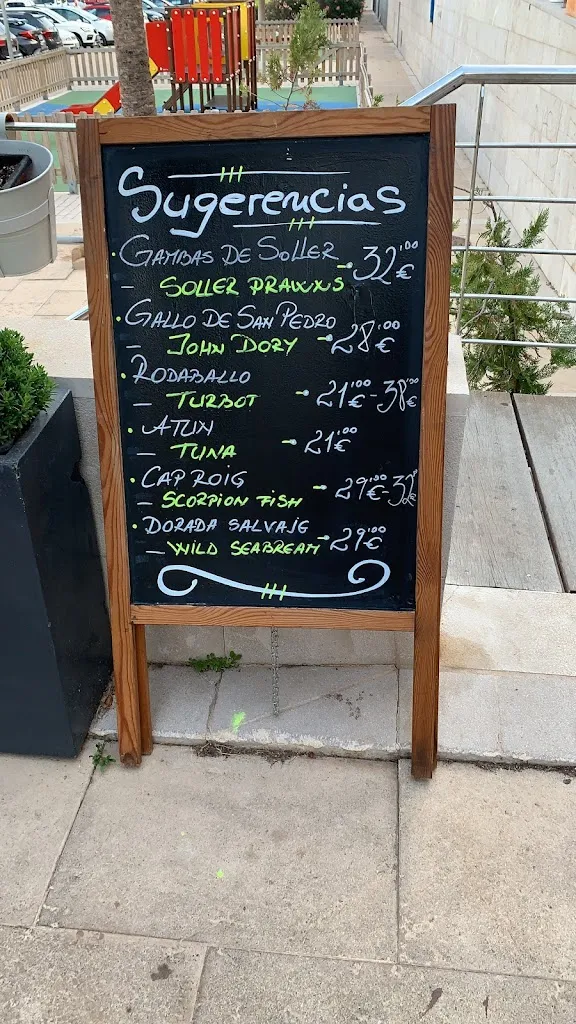 Sugerencias
· GAMBAS DE SOLLER 32'00 €
– SOLLER PRAWNS
· GALLO DE SAN PEDRO
– JOHN DORY 28'00 €
· RODABALLO
– TURBOT 21'00 € - 38'00 €
· ATUN
– TUNA 21'00 €
· CAP ROIG
– SCORPION FISH 29'00 € - 32 €
· DORADA SALVAJE
– WILD SEABREAM 29'00 €